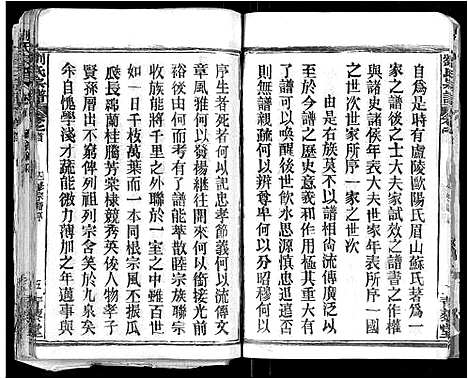 自爲是時有盧陵歐陽氏眉山蘇氏著爲一
家之譜後之士大夫家試效之譜書之作權
與諸史諸侯年表大夫世家年表所序一國
之世次世家所序一家之世次
由是右族莫不以譜相尙流傳廣泛以
至於今譜之歷史意義和作用極其重大有
了譜可以喚醒後世飲水思源慎意追遠而
無譜親疏何以別辨尊卑何以分昭穆何以
序生者死者何以記忠孝節義何以流傳文
章風雅何以發揚繼往開來何以銜接光前
裕後由於何而考有了譜能萃散睦宗族聯
千里之外聯於一室之中雖百世
如一日千枝萬葉而一本同根宗風不振瓜
瓞長綿蘭桂騰芳棠棣競秀英俊人物孝子
賢孫層出不窮俾列祖列宗含笑於九泉矣
余自愧學淺才疏能微力薄加之年邁事與